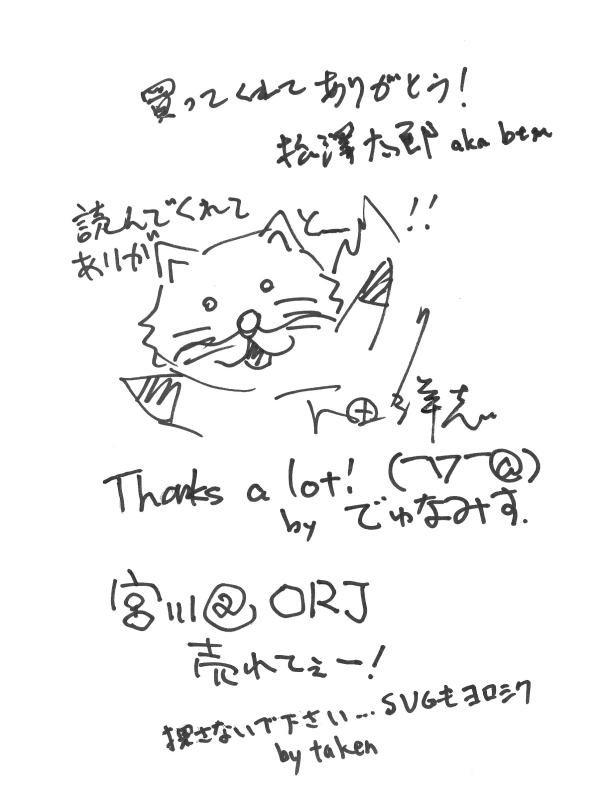 買ってくれてありがとう!
松澤太郎 aka btm
読んでくれて
ありがとー!!
下田洋志
Thanks a lot! (￣▽￣@)
by でゅなみす.
宮川@ORJ
売れてぇー!
探さないで下さい...SVGもヨロシク
by taken